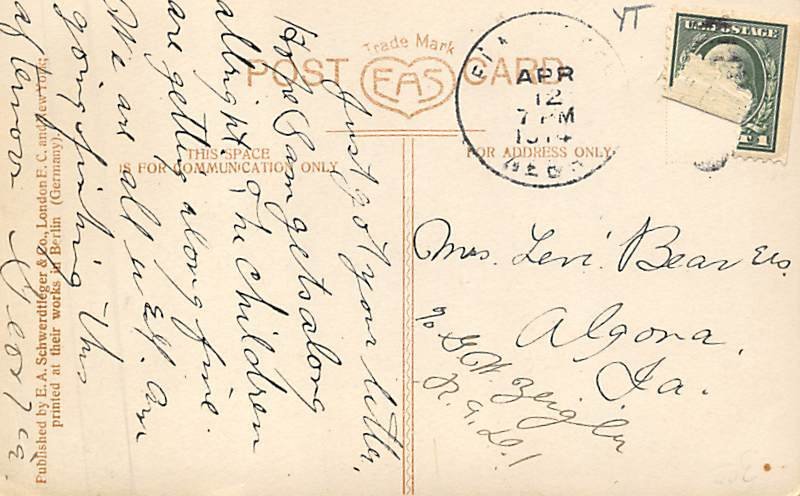 Trade Mark
POST CARD
EAS
U.S. POSTAGE
1
APR
12
7 PM
1914
NEBR
THIS SPACE
IS FOR COMMUNICATION ONLY
FOR ADDRESS ONLY
Just got your letter.
Hope Sam gets along
allright, The children
are getting along fine.
We are all well. Am
going fishing this
afternoon
Mrs. Levi Bear
Algona,
Ia.
% G.W. Zeigler
Published by E. A. Schwerdtfeger & Co., London E. C. and New York;
printed at their works in Berlin (Germany).